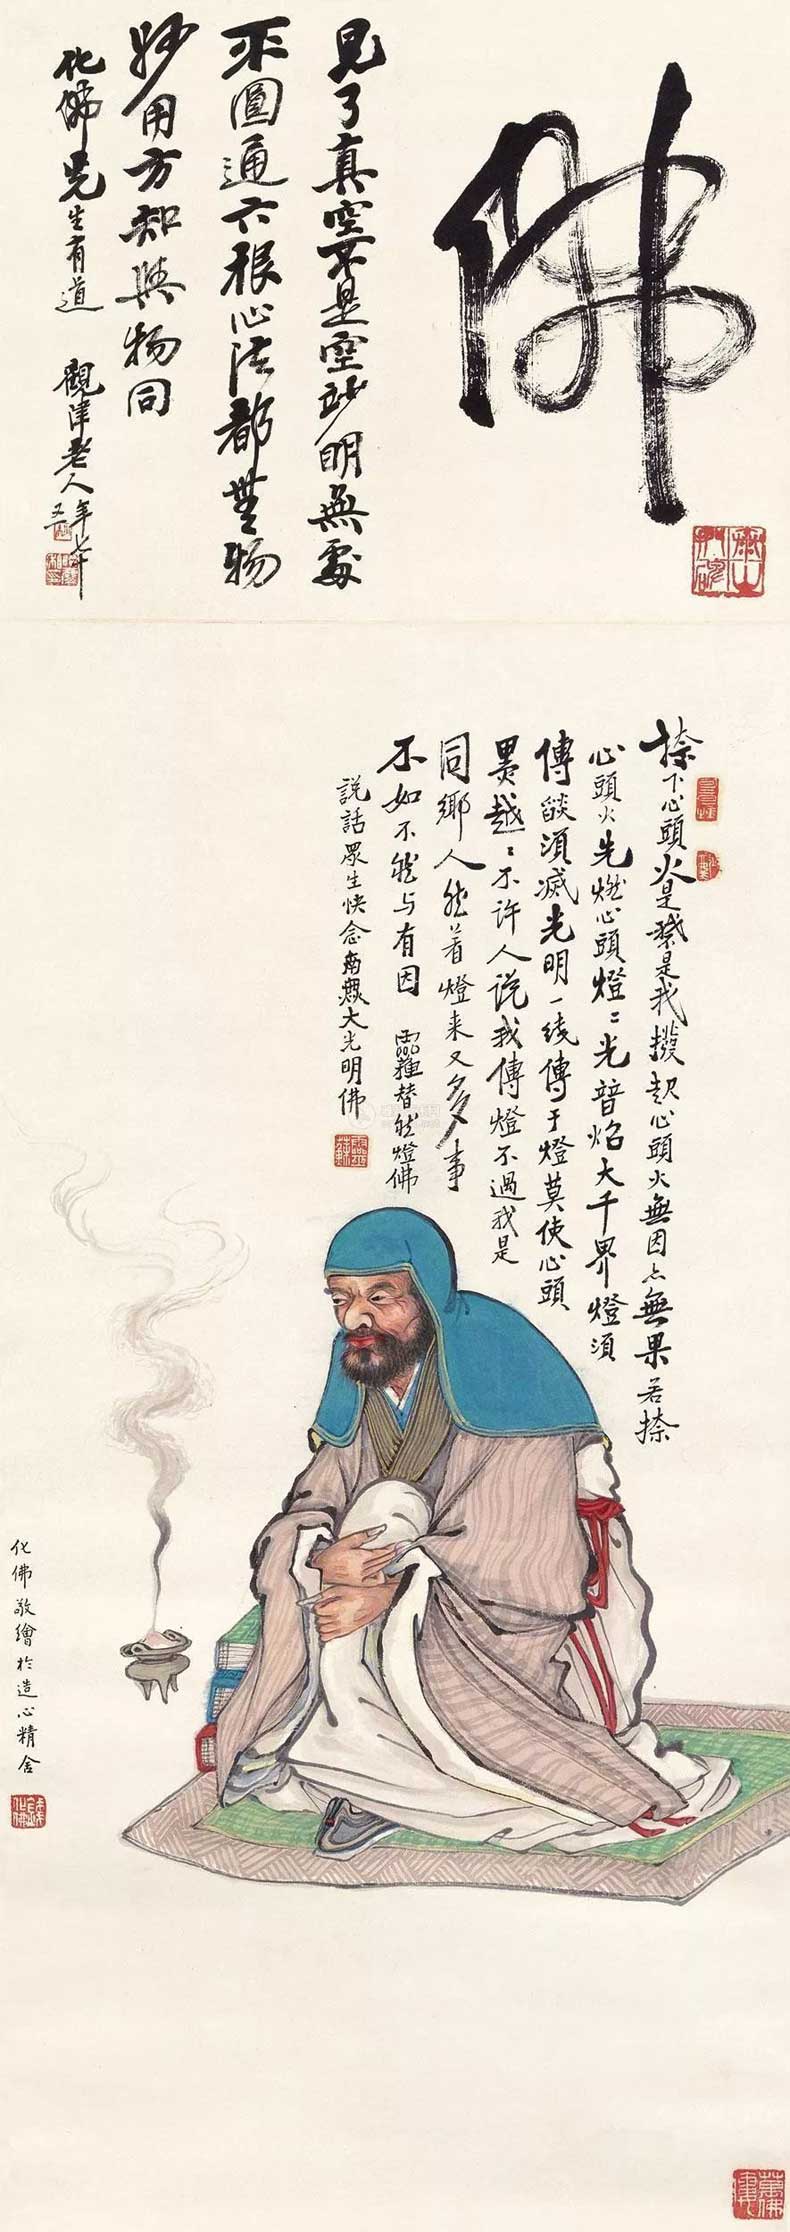 佛
見了真空不是空妙明無處
不圓通六根心法都無物
妙用方知與物同
化佛先生有道 觀津老人年七十又五
捺下心頭火是我是我撥起心頭火無因亦無果若捺
心頭火先燃心頭燈〻光普焰大千界燈須
傳燄須滅光明一線傳于燈莫使心頭
黑越〻不許人說我傳燈不過我是
同鄉人然着燈来又多事
不如不然与有因 雷雞替然燈佛
說話眾生快念南無大光明佛
化佛敬繪於造心精舍